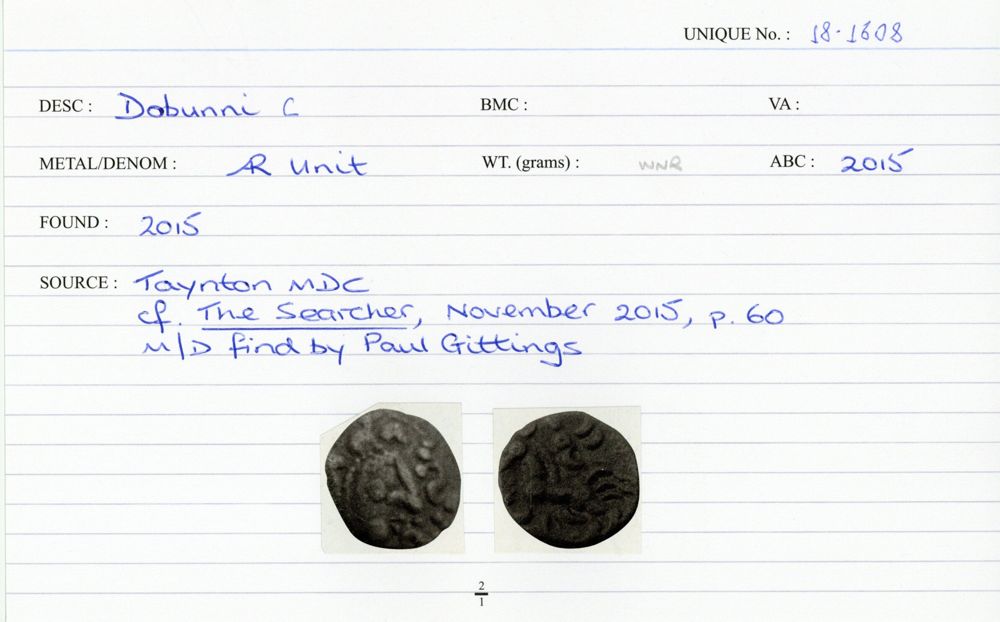 UNIQUE No. : 18-1608
DESC : Dobunni C BMC : VA :
METAL/DENOM : AR Unit WT. (grams) : WNR ABC : 2015
FOUND : 2015
SOURCE : Taynton MDC
cf. The Searcher, November 2015, p. 60
M/D find by Paul Gittings
2
1